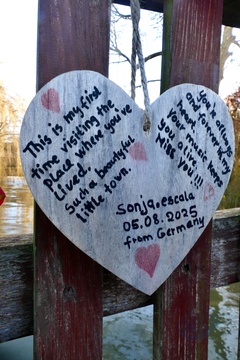 This is my first
time visiting the
place where you've
Lived.
Such a beautyful
little town.
you're always
and forever in my
heart
your music keeps
you alive.
Miss you!!!
Sonja.escala
05.08.2025
from Germany